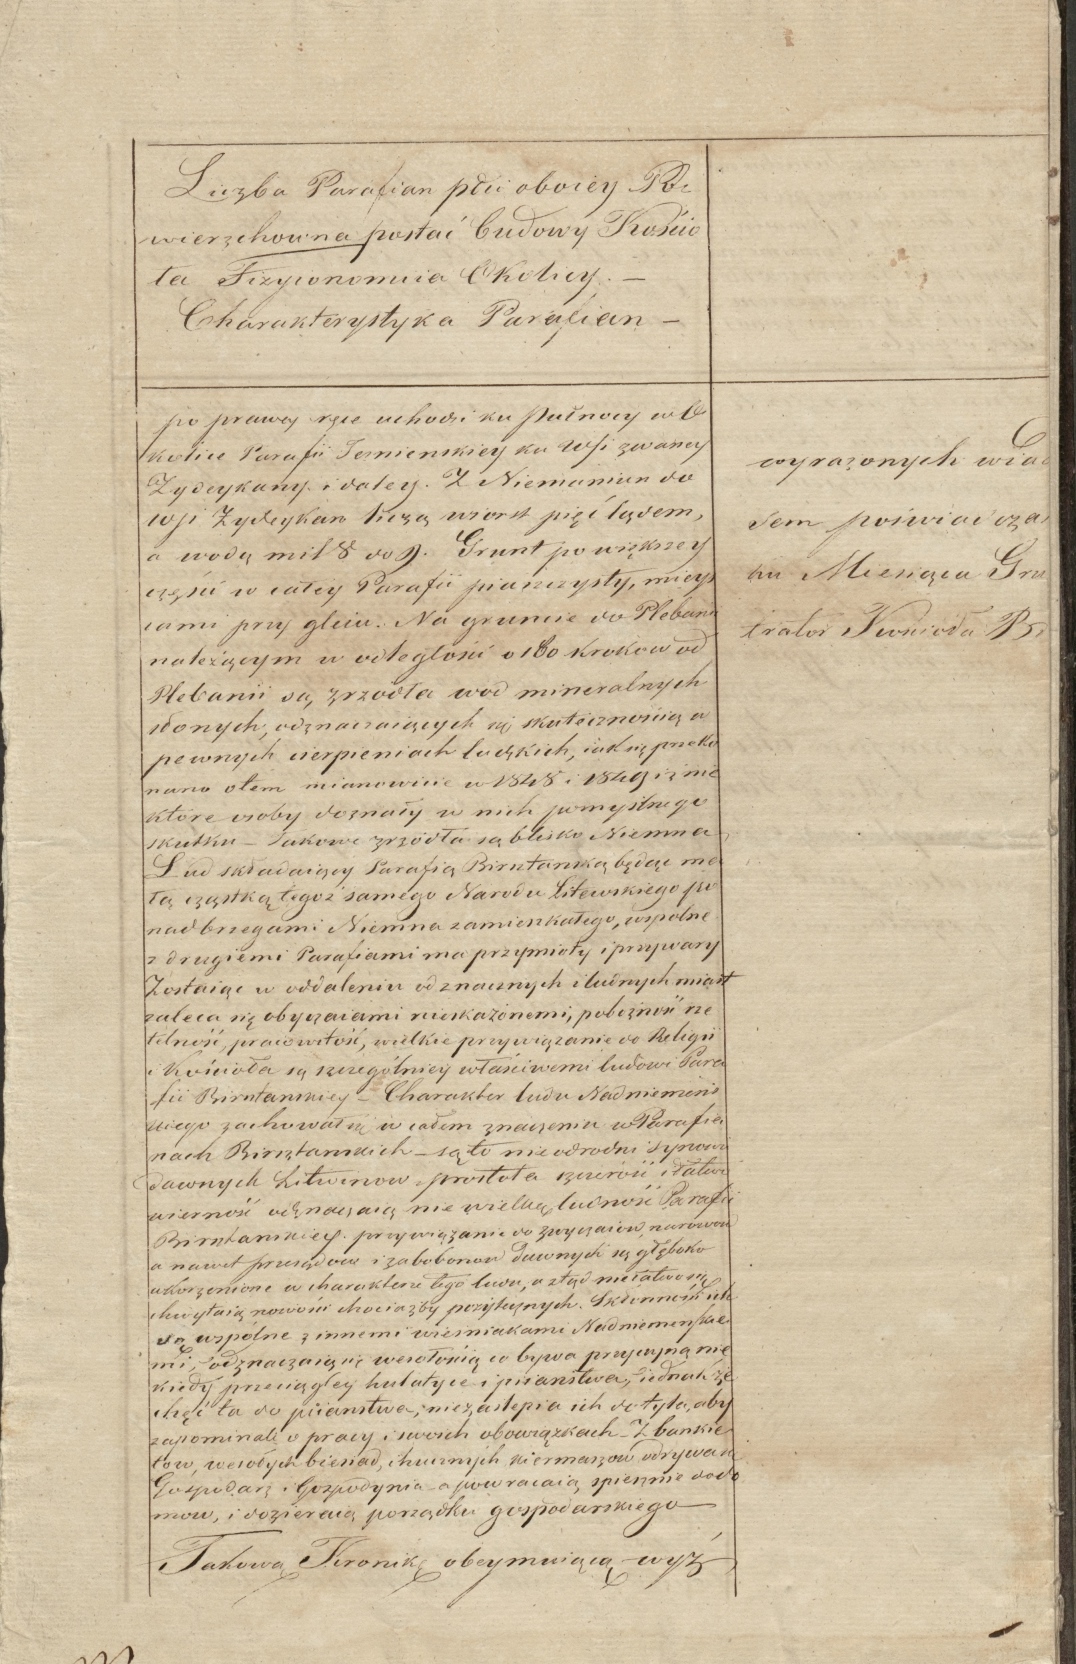 Liczba Parafian płci oboiey Po-
wierzchowna postać budowy Kościo
ła Fizyionomiia Okolicy. —
Charakterystyka Parafian —
po prawey ręce uchodzi ku Pułnocy w O
kolice Parafii Jeznienskiey ku Wsi zwaney
Zydeykany i daley. Z Niemaniun do
wsi Zydeykan liczą wiorst pięć lądem,
a wodą mil 8 do 9. Grunt po większey
części w całey Parafii piaszczysty, mieys
cami przy gliiu. Na gruncie do Plebanii
należącym w odległości o 180 kroków od
Plebanii są zrzódła wod mineralnych
słonych, odznaczaiących się skutecznością w
pewnych cierpieniach ludzkich, iak się przeko
nano o tem mianowicie w 1848 i 1849 iż nie
które osoby doznały w nich pomyślnego
skutku — Takowe zrzódła są blisko Niemna
Lud składaiący Parafią Birsztanską będąc ma
łą cząstką tegoż samego Narodu Litewskiego po
nad brzegami Niemna zamieszkałego, wspolne
z drugiemi Parafiami ma przymioty i przywary
Zostaiąc w oddaleniu od znacznych i ludnych miast
zaleca się obyczaiami nieskażonemi, pobożność rze
telność, pracowitość, wielkie przywiązanie do Religii
i Kościoła są szczególniey właściwemi ludowi Para
fii Birsztanskiey — Charakter ludu Nadniemens
kiego zachował się w całem znaczeniu w Parafia
nach Birsztanskich — są to nieodrodni synowie
dawnych Litwinow, prostota szczerość i łatwo
wierność odznaczaią nie wielką ludność Parafii
Birsztanskiey. przywiązanie do zwyczaiow, narowow
a nawet przesądow i zabobonow dawnych są głęboko
ukorzenione w charakterze tego ludu, a ztąd niełatwo się
chwytaią nowości chociażby pożytecznych. Skłonności ich
są wspólne z innemi wieśniakami Nadniemenskie
mi, odznaczaią się wesołością co bywa przyczyną nie
kiedy przeciągłey hulatyce i piianstwa, iednak że
chęć ta do piianstwa, nie zaslepia ich do tyla, aby
zapominali o pracy i swoich obowiązkach — Z bankie
tow, wesołych biesiad, hucznych kiermaszow odrywa się
Gospodarz i Gospodynia a powracaią spiesznie do do
mow, i dozieraią porządku gospodarskiego —
Takową Kronikę obeymuiącą wyż
wyrażonych wiad
sem poświadcza
ku Miesiąca Gru
trator Kościoła Bi